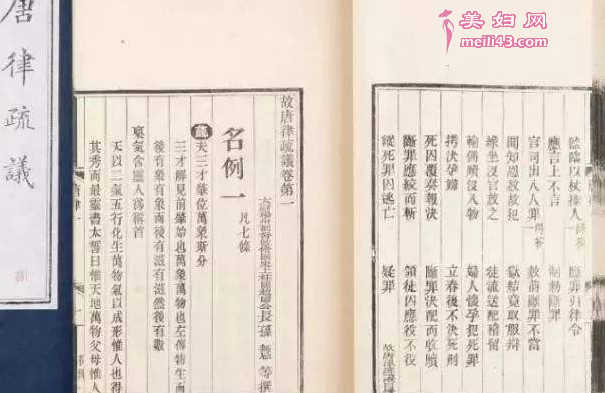 美妇网
meili43.com
監臨以杖捶人 問答 斷罪引律令
應言上不言 制勅斷罪
官司出入人罪 問答 赦前斷罪不當
聞知恩赦故犯 獄結竟取服辯
緣坐沒官放之 徒流送配稽留
輸備贖沒入物 婦人懷孕犯死罪
拷決孕婦 立春後不決死刑
死囚覆奏報決 斷罪決配而收贖
斷罪應絞而斬 領徒囚應役不役
縱死罪囚逃亡 疑罪
故唐律疏議
故唐律疏議卷第一
長孫 無忌 等撰
名例一 凡七條
疏 夫三才肇位萬象斯分
三才解見前肇始也萬象萬物也左傳物生而
後有象有象而後有滋有滋然後有數
稟氣含靈人為稱首
天以二氣五行化生萬物氣以成形惟人也得
其秀而最靈書太誓曰惟天地萬物父母惟人
唐律疏議